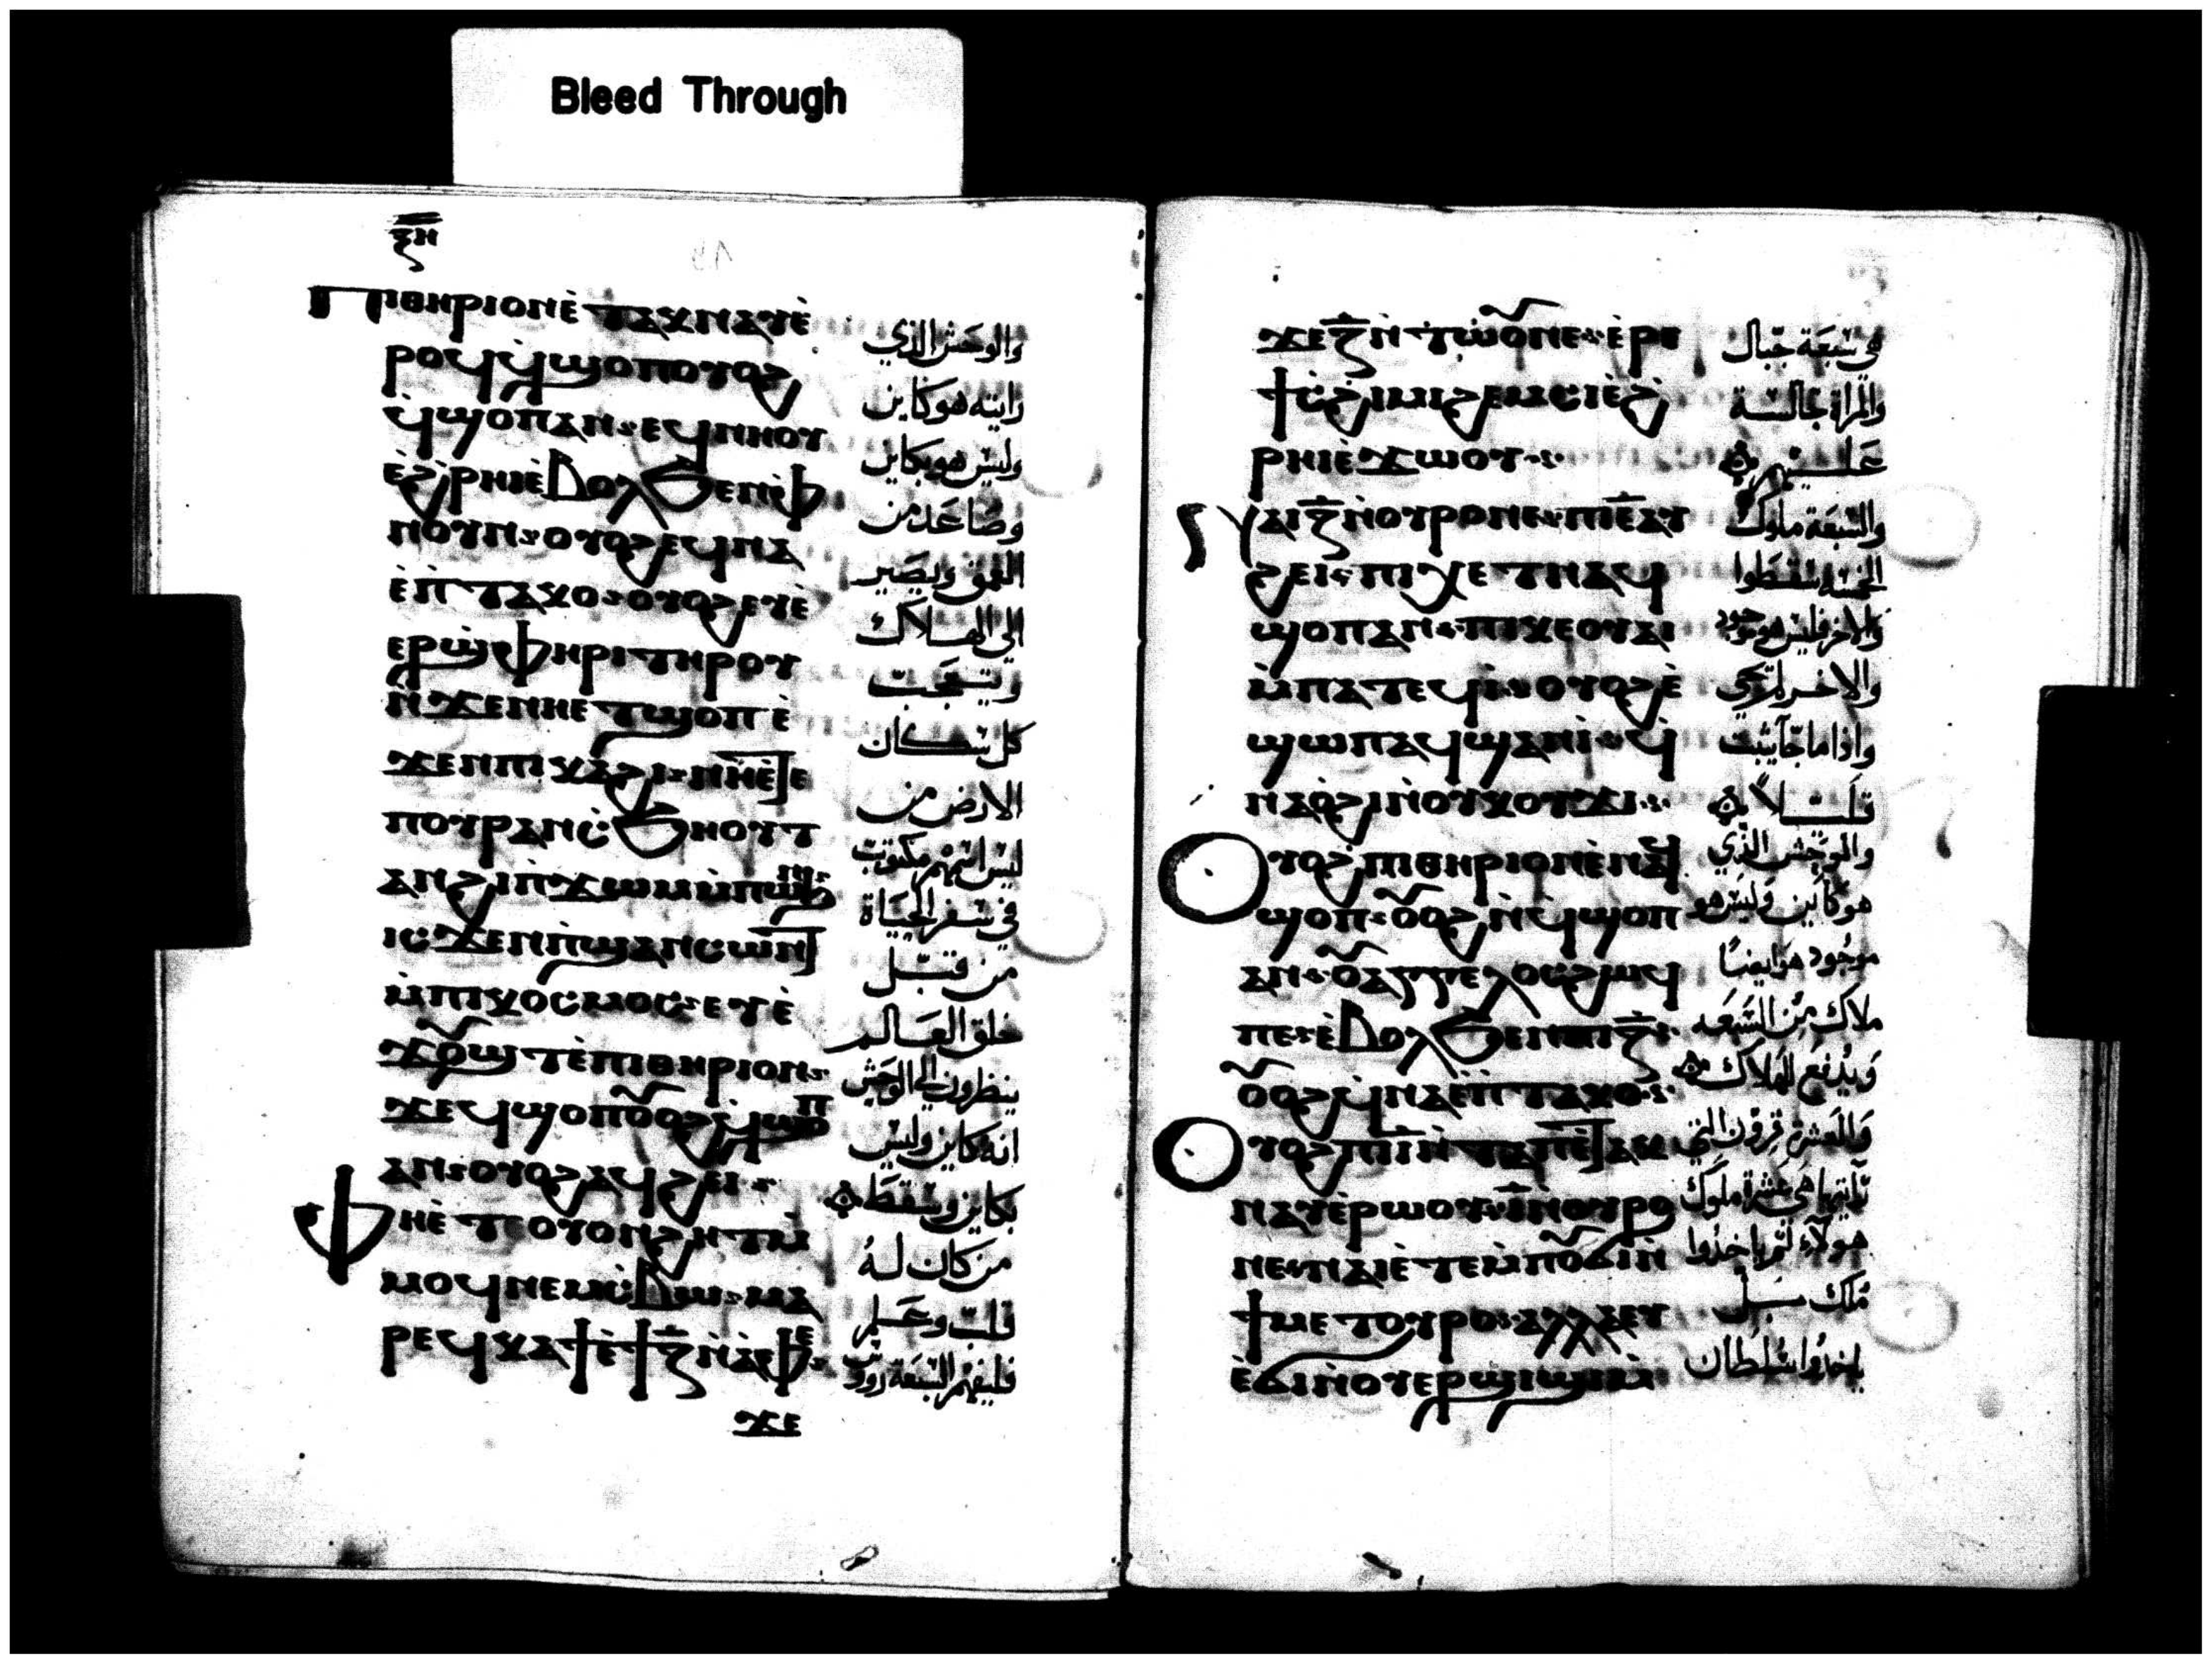 Bleed Through
ⲝⲏ
ⲡⲓⲑⲏⲣⲓⲟⲛⲉ̀ⲧⲁⲕⲛⲁⲩⲉ̀
ⲣⲟϥϥ̀ϣⲟⲡⲟⲩⲟϩ
ϥ̀ϣⲟⲡⲁⲛ·ⲉϥⲛⲏⲟⲩ
ⲉ̀ϩ̀ⲣⲏⲓⲉ̀ⲃⲟⲗϧⲉⲛⲫ
ⲛⲟⲩⲛ·ⲟⲩⲟϩⲉϥⲛⲁ
ⲉ̀ⲡ̀ⲧⲁⲕⲟ·ⲟⲩⲟϩⲉⲩⲉ̀
ⲉⲣϣ̀ⲫⲏⲣⲓⲧⲏⲣⲟⲩ
ⲛ̀ϫⲉⲛⲏⲉⲧϣⲟⲡⲉ̀
ϫⲉⲛⲡⲓⲕⲁϩⲓ·ⲛⲏⲉ̀ⲧⲉ
ⲡⲟⲩⲣⲁⲛⲥ̀ϧⲏⲟⲩⲧ
ⲁⲛϩⲓⲡ̀ϫⲱⲙⲙ̀ⲡⲱⲛϧ
ⲓⲥϫⲉⲛⲡ̀ϣⲁⲛⲥⲱⲛⲧ
ⲙ̀ⲡⲓⲕⲟⲥⲙⲟⲥ·ⲉⲩⲉ̀
ϫⲟ̃ϣⲧⲉ̀ⲡⲓⲑⲏⲣⲓⲟⲛ·
ϫⲉϥϣⲟⲡⲟ̃ⲟϩϥ̀ϣⲟⲡ
ⲁⲛ·ⲟⲩⲟϩⲁϥϩⲉⲓ·
ⲫⲏⲉ̀ⲧⲉⲟⲩⲟⲛϩⲏⲧⲙ̀
ⲙⲟϥⲛⲉⲙⲥ̀ⲃⲱ·ⲙⲁ
ⲣⲉϥⲕⲁϯⲉ̀ϯⲍ̅ⲛ̀ⲁ̀ⲫⲉ·
ϫⲉ
والوحش الذي
رايته هو كاين
وليس هو بكاين
وصاعد من
العمق ويصير
الى الهلاك
ويتعجب
كل سكان
الارض من
ليس اسمهم مكتوب
في سفر الحياة
من قبل
خلق العالم
ينظرون الى الوحش
انه كاين وليس
بكاين وسقط
من كان له
قلب وعلم
فليفهم السبعة رووس
ϫⲉⲍ̅ⲛ̀ⲧⲱ̀ⲟ̃ⲛⲉ·ⲉ̀ⲣⲉ
ϯⲥ̀ϩⲓⲙⲓϩⲉⲙⲥⲓⲉ̀ϩ̀
ⲣⲏⲓⲉ̀ϫⲱⲟⲩ·
ⲁⲓⲍ̅ⲛ̀ⲟⲩⲣⲟⲛⲉ·ⲡⲓⲉ̅ⲁⲩ
ϩⲉⲓ·ⲡⲓⲭⲉⲧⲛⲁϥ
ϣⲟⲡⲁⲛ·ⲡⲓⲕⲉⲟⲩⲁⲓ
ⲙ̀ⲡⲁⲧⲉϥⲓ̀·ⲟⲩⲟϩⲉ̀
ϣⲱⲡⲁϥϣⲁⲛⲓ̀·ϥ̀
ⲛⲁⲟ̀ϩⲓⲛ̀ⲟⲩⲕⲟⲩϫⲓ·
ⲟⲩⲟϩⲡⲓⲑⲏⲣⲓⲟⲛⲉ̀ⲛⲁϥ
ϣⲟⲡ·ⲟ̃ⲟϩⲛ̀ϥ̀ϣⲟⲡ
ⲁⲛ·ⲟ̃ⲁⲅⲅⲉⲗⲟⲥϩⲱϥ
ⲡⲉ·ⲉ̀ⲃⲟⲗϧⲉⲛⲡⲓⲍ̅·
ⲟ̃ⲟϩϥ̀ⲛⲁⲉ̀ⲡ̀ⲧⲁⲕⲟ·
ⲟⲩⲟϩⲡⲓⲓ̅ⲛ̀ⲧⲁⲡⲉ̀ⲧⲁⲕ
ⲛⲁⲩⲉ̀ⲣⲱⲟⲩ·ⲓ̅ⲛ̀ⲟⲩⲣⲟ
ⲛⲉ·ⲛⲁⲓⲉ̀ⲧⲉⲙ̀ⲡⲟ̃ϭⲓⲛ̀
ϯⲙⲉⲧⲟⲩⲣⲟ·ⲁⲗⲗⲁⲉⲩ
ⲉ̀ϭⲓⲛ̀ⲟⲩⲉⲣϣⲓϣⲓⲙ̀
في سبعة جبال
والمراة جالسة
عليهم
والسبعة ملوك
الخمسة سقطوا
والاخر فليس هو موجود
والاخر لم يجي
واذا ما جا يثبت
قليلاً
والوحش الذي
هو كاين وليس هو
موجود هو ايضاً
ملاك من السبعه
ويدفع للهلاك
والعشرة قرون التي
رأيتها هي عشرة ملوك
هولاء لم ياخذوا
ملك بل
ياخذوا سلطان